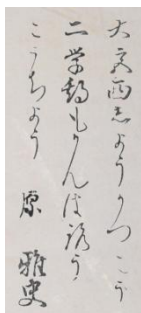 大宮西志ようかつこう
二学期もかんは路う
こうちよう 原 雅史